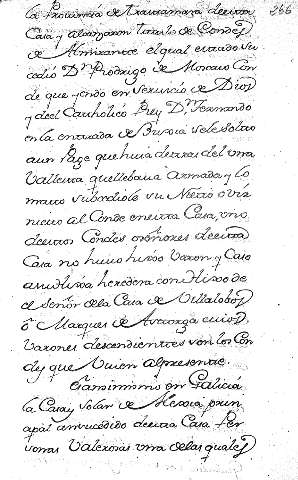 266
la Provincia de trastamara desta
Casa y alcanzaron titulo de Condes
de Altamira el qual estado su
cedio Dn Rodrigo de Moscoso Con
de que yendo en servicio de Dios
y del Catholico Rey Dn Fernando
en la entrada de se le solto
a un Page que huia detras del una
Vallesta que llebaba Armada y lo
mato subzediole su Nieto
al Conde en esta Casa, uno
destos Condes Señores desta
Casa no hubo hixo Varon y Caso
su hixa heredera con Hixo de
el Señor de la Casa de Villalobos
o Marques de Astorga cuios
Varones descendientes son los Con
des que Viuen al presente.
en Galicia
la Casa y Solar de prin
cipal an sucedido desta Casa Per
sonas Valerosas una de las quales